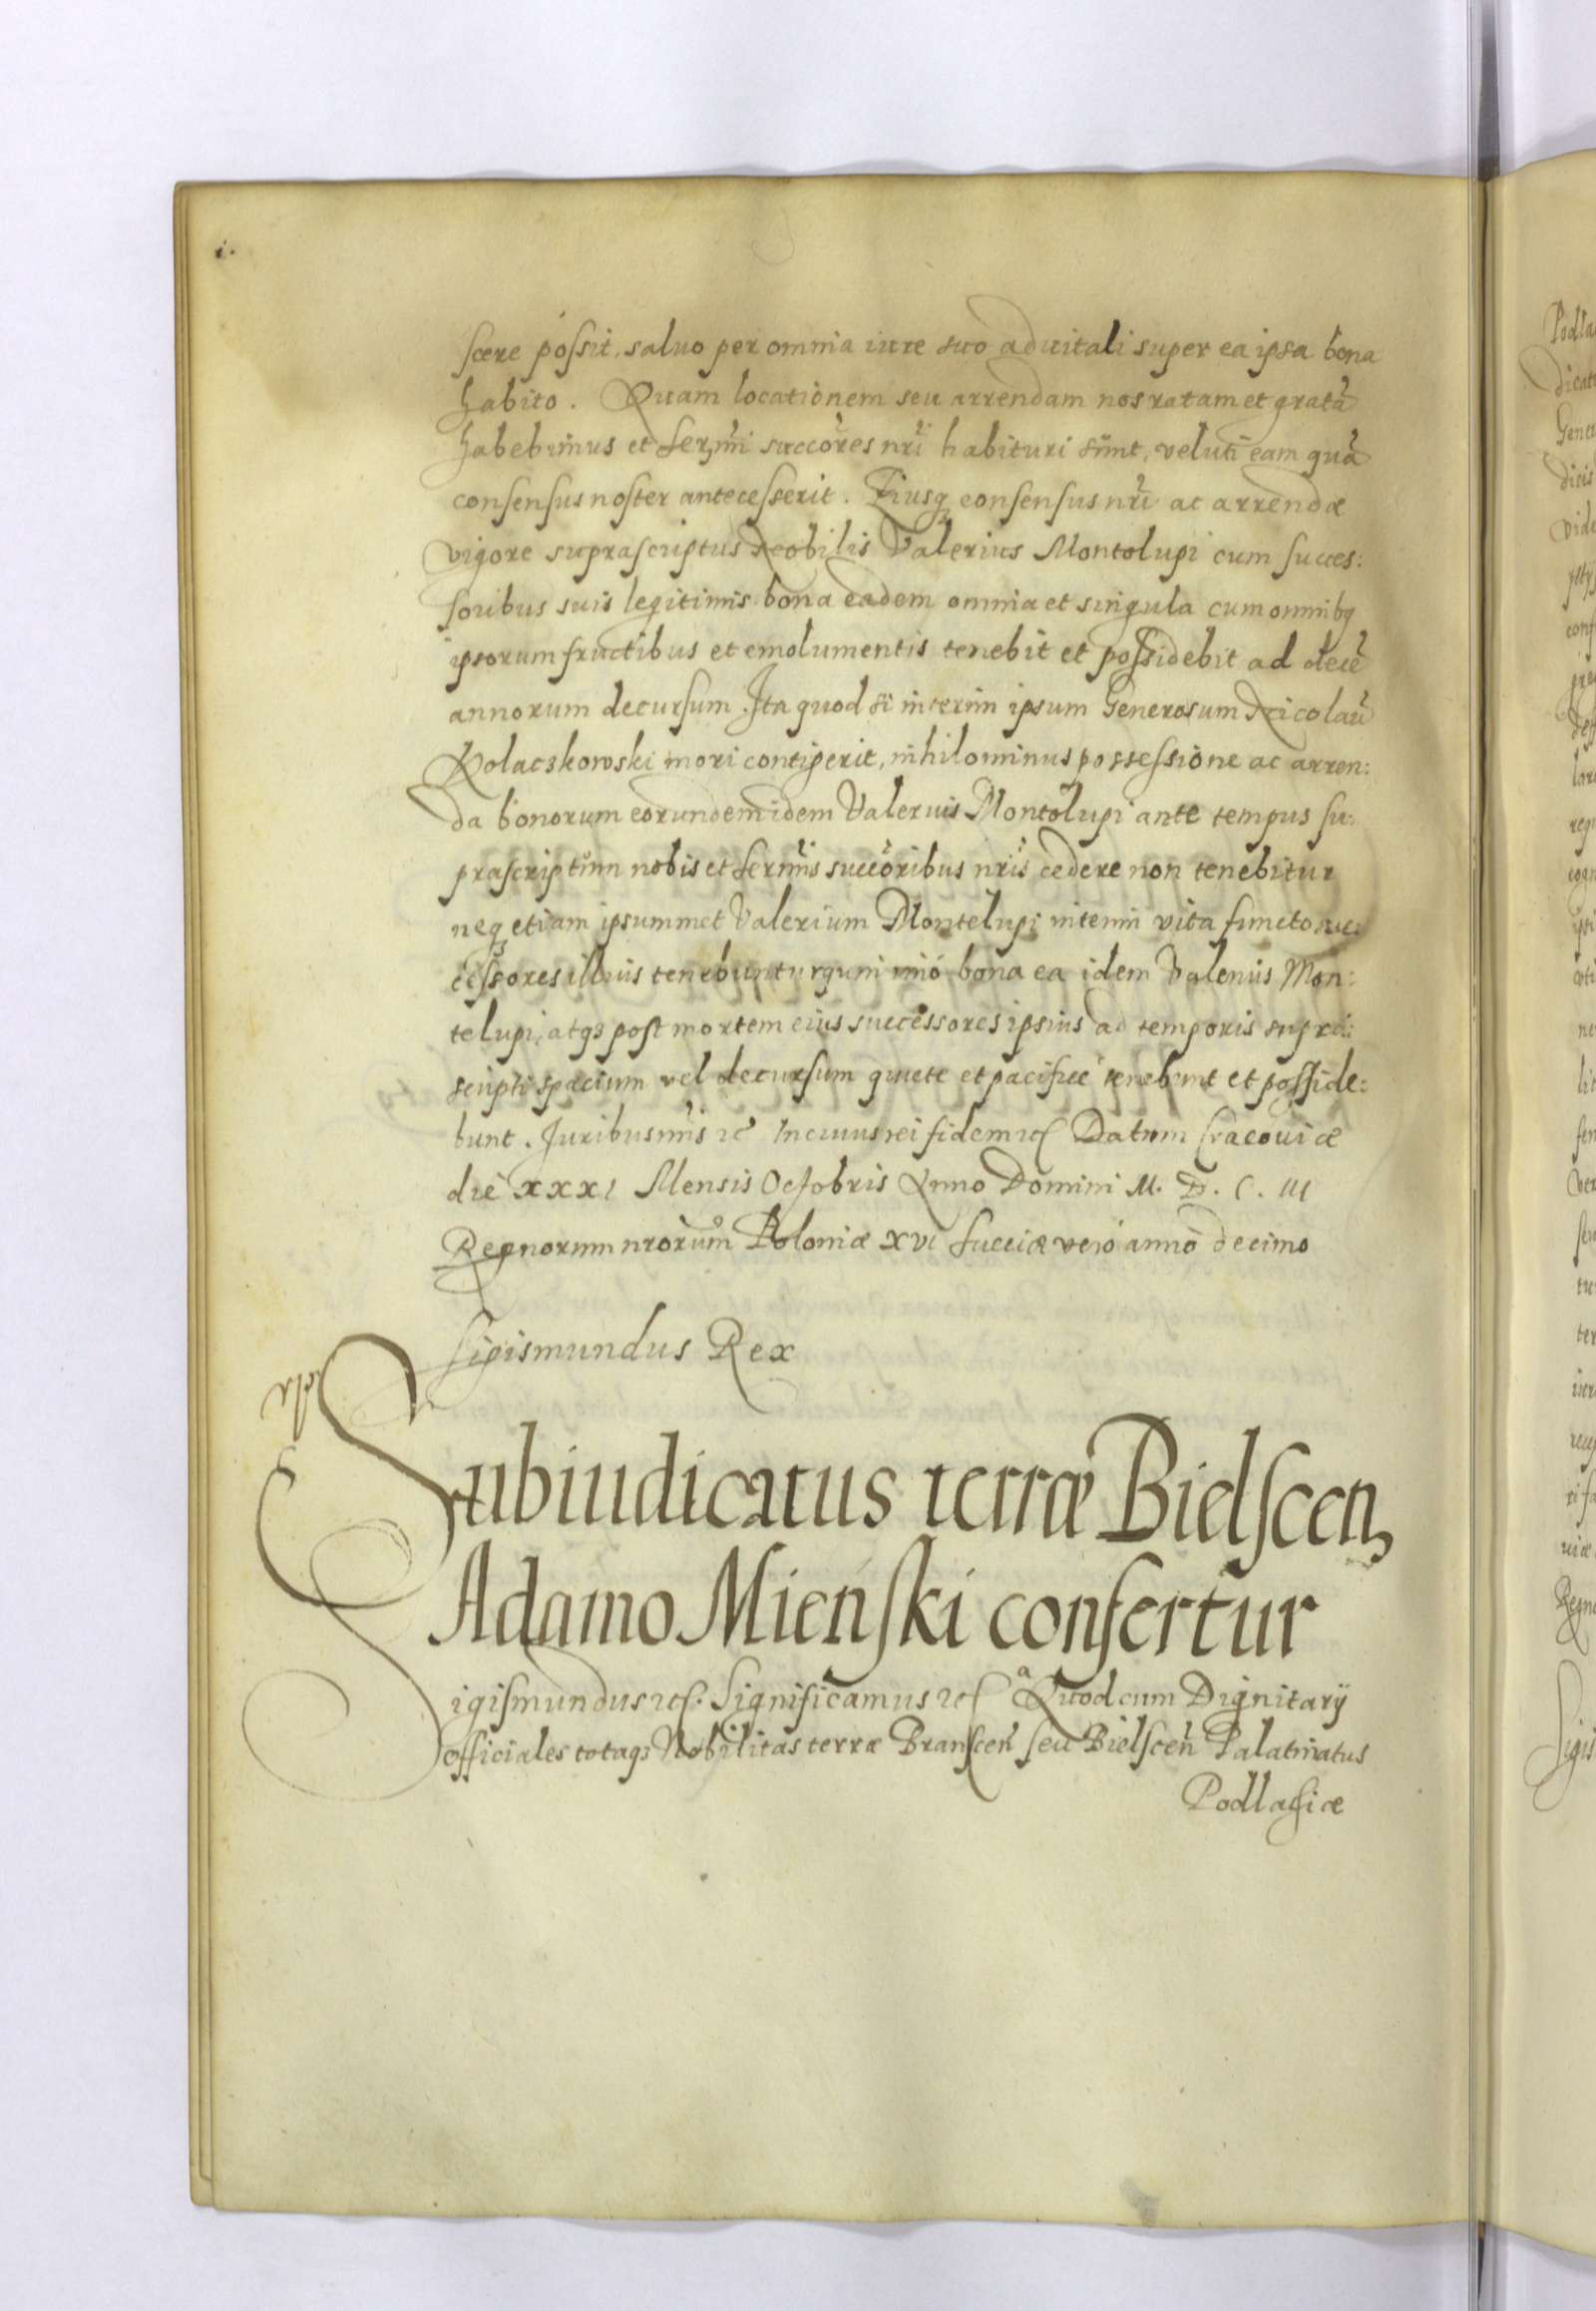 i.
scere possit, salvo per omnia iure suo advitali super ea ipsa bona
habito. Quam locationem seu arrendam nos ratam et gratã
habebimus et Serm̃i succores nr̃i habituri sunt, veluti eam quã
consensus noster antecesserit. Eiusq consensus nr̃i ac arrendæ
vigore suprascriptus Nobilis Valerius Montolupi cum succes:
soribus suis legitimis bona eadem omnia et singula cum omnibq
ipsorum fructibus et emolumentis tenebit et possidebit ad decẽ
annorum decursum. Ita quod si interim ipsum Generosum Nicolaũ
Kolaczkowski mori contigerit, nihilominus possessione ac arren:
da bonorum eorundem idem Valerius Montolupi ante tempus su:
prascriptum nobis et Sermĩs succoribus nrĩs cedere non tenebitur
neq etiam ipsummet Valerium Montelupi interim vita functo suc:
cessores illius tenebuntur quin imò bona ea idem Valerius Mon:
telupi, atqs post mortem eius successores ipsius ad temporis supra:
scripti spacium vel decursum quiete et pacifice tenebunt et posside:
bunt. Juribus nr̃is etc In cuius rei fidem etc Datum Cracoviæ
die XXXI Mensis Octobris Anno Domini M. D. C. III
Regnorum nrorum Poloniæ XVI Sueciæ verò anno decimo
Sigismundus Rex
Subiudicatus terræ Bielscen
Adamo Mieński confertur
Sigismundus etc. Significamus etc Quod cum Dignitarij
officiales totaqs Nobilitas terræ Branscen̄ seu Bielscen̄ Palatinatus
Podlachiæ